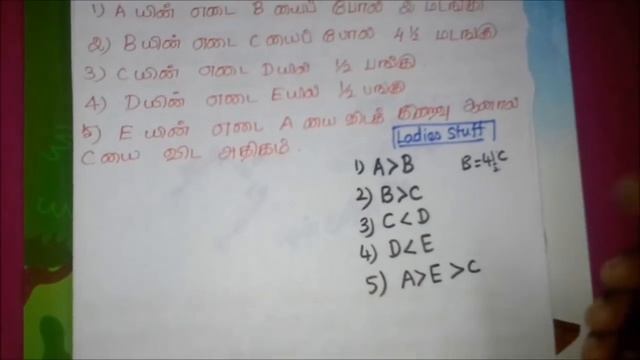 1) A யின் எடை B யைப் போல் 2 மடங்கு
2) B யின் எடை C யைப் போல் 4 ½ மடங்கு
3) C யின் எடை D யில் ½ பங்கு
4) D யின் எடை E யில் ½ பங்கு
5) E யின் எடை A யை விடக் குறைவு ஆனால்
C யை விட அதிகம்.
Ladies Stuff
1) A>B B=4½C
2) B>C
3) C<D
4) D<E
5) A>E>C